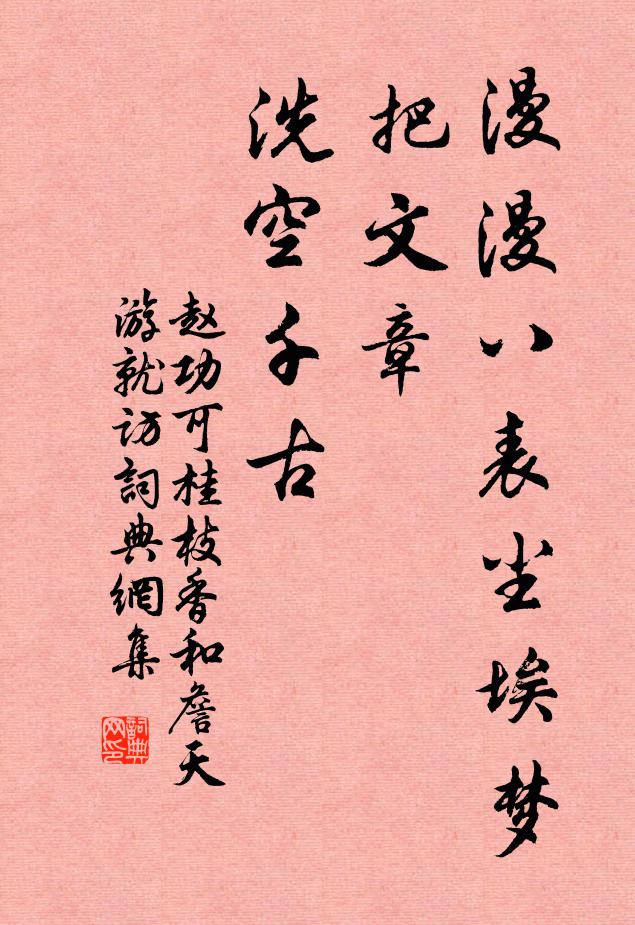 漫漫八表尘埃梦
把文章
洗空千古
赵功可桂枝香和詹天
游就访詞典網集
詞典
网印